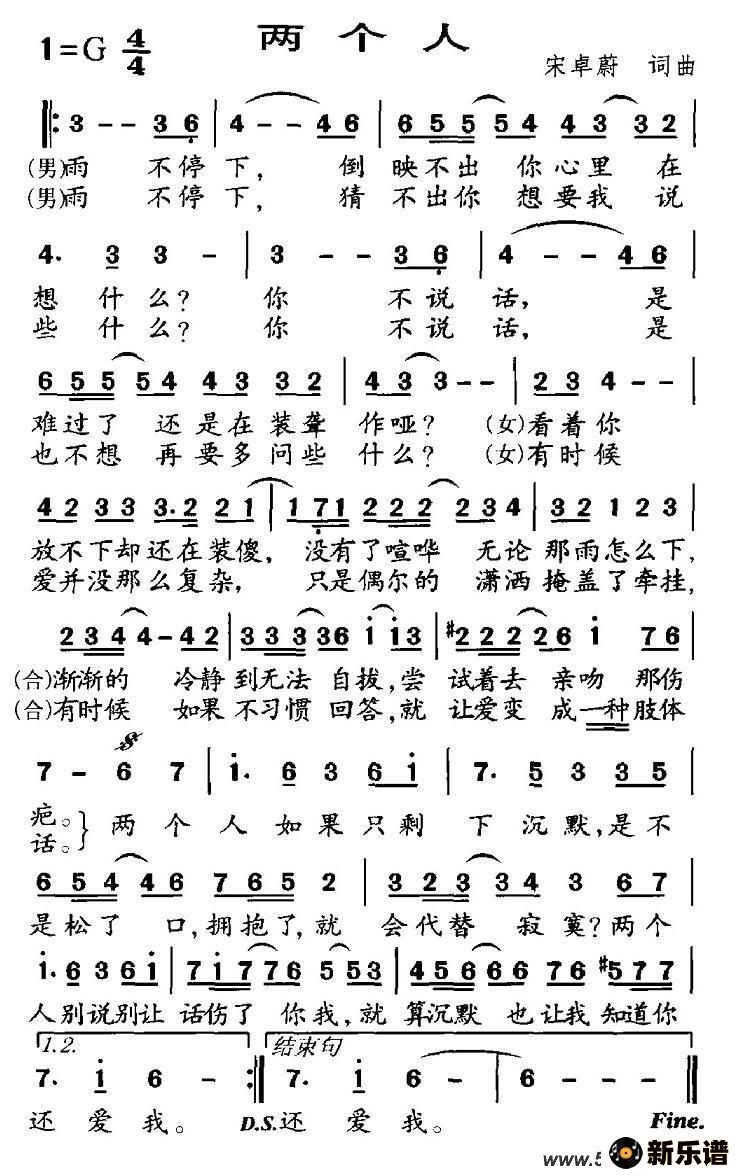 两个人
1=G 4/4
宋卓蔚 词曲
3 - - 3 6 | 4 - - 4 6 | 6 5 5 5 4 4 3 3 2 |
(男)雨 不停下, 倒 映不出 你心里 在
(男)雨 不停下, 猜 不出你 想要我 说
4. 3 3 - | 3 - - 3 6 | 4 - - 4 6 |
想 什么? 你 不说话, 是
些 什么? 你 不说话, 是
6 5 5 5 4 4 3 3 2 | 4 3 3 - - | 2 3 4 - - |
难过了 还是在装聋 作哑? (女)看着你
也不想 再要多问些 什么? (女)有时候
4 2 3 3 3. 2 2 1 | 1 7 1 2 2 2 2 3 4 | 3 2 1 2 3 |
放不下却还在装傻, 没有了喧哗 无论那雨怎么下,
爱并没那么复杂, 只是偶尔的 潇洒掩盖了牵挂,
2 3 4 4 - 4 2 | 3 3 3 3 6 i i 3 | #2 2 2 2 6 i 7 6 |
(合)渐渐的 冷静到无法自拔,尝 试着去 亲吻 那伤
(合)有时候 如果不习惯回答,就 让爱变 成一种肢体
7 - 6 7 | i. 6 3 6 i | 7. 5 3 3 5 |
疤。} 两个人如果只剩 下沉默,是不
话。
6 5 4 4 6 7 6 5 2 | 3 2 3 3 3 6 7 |
是松了 口,拥抱了,就 会代替 寂寞?两个
i. 6 3 6 i | 7 i 7 7 6 5 5 3 | 4 5 6 6 6 7 6 #5 7 7 |
人别说别让 话伤了 你我,就 算沉默 也让我知道你
1.2. 结束句
7. i 6 - :‖ 7. i 6 - | 6 - - - ‖
还爱我。 D.S.还 爱我。 Fine.
www.5 新乐谱